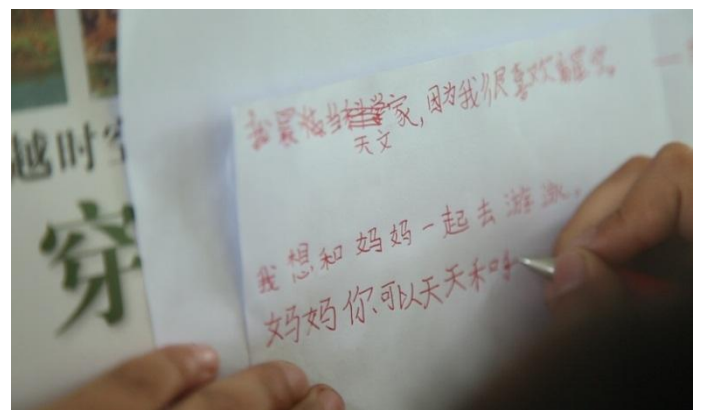 越时空
穿
我最想当科学家，因为我很喜欢看星空。
天文
我想和妈妈一起去游泳。
妈妈你可以天天和